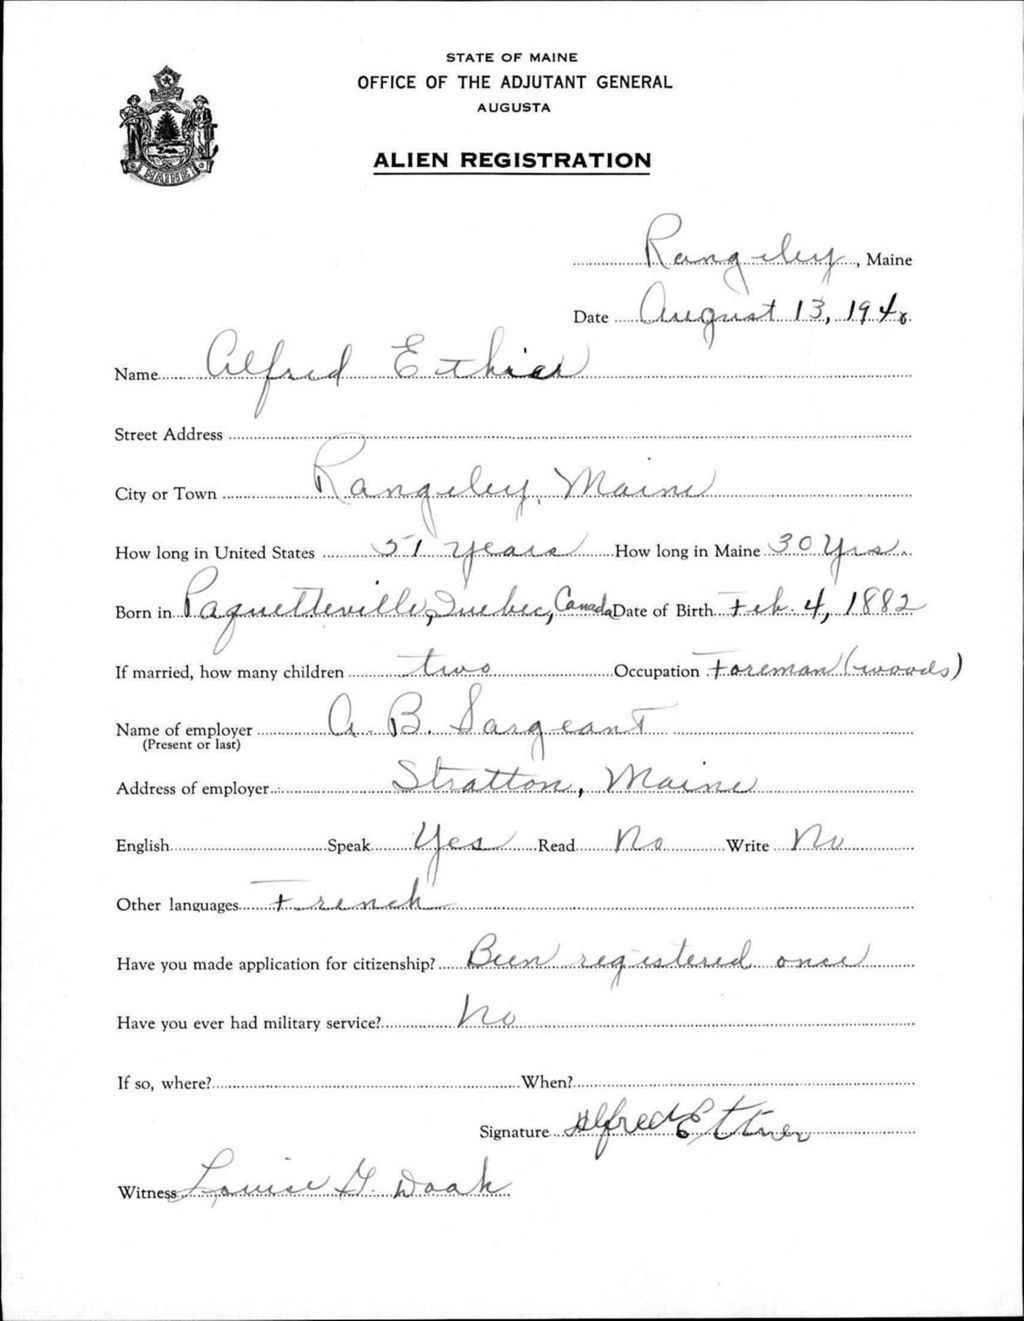 STATE OF MAINE
OFFICE OF THE ADJUTANT GENERAL
AUGUSTA
ALIEN REGISTRATION
MAINE
Rangeley, Maine
Date August 13, 1940
Name Alfred Ethier
Street Address
City or Town Rangeley, Maine
How long in United States 51 years How long in Maine 30 Yrs.
Born in Paquetteville, Quebec, Canada Date of Birth Feb. 4, 1882
If married, how many children two Occupation Foreman (woods)
Name of employer A. B. Sargeant
(Present or last)
Address of employer Stratton, Maine
English Speak Yes Read No Write No
Other languages French
Have you made application for citizenship? Been registered once
Have you ever had military service? No
If so, where? When?
Signature Alfred
Witness Louise G. Doak